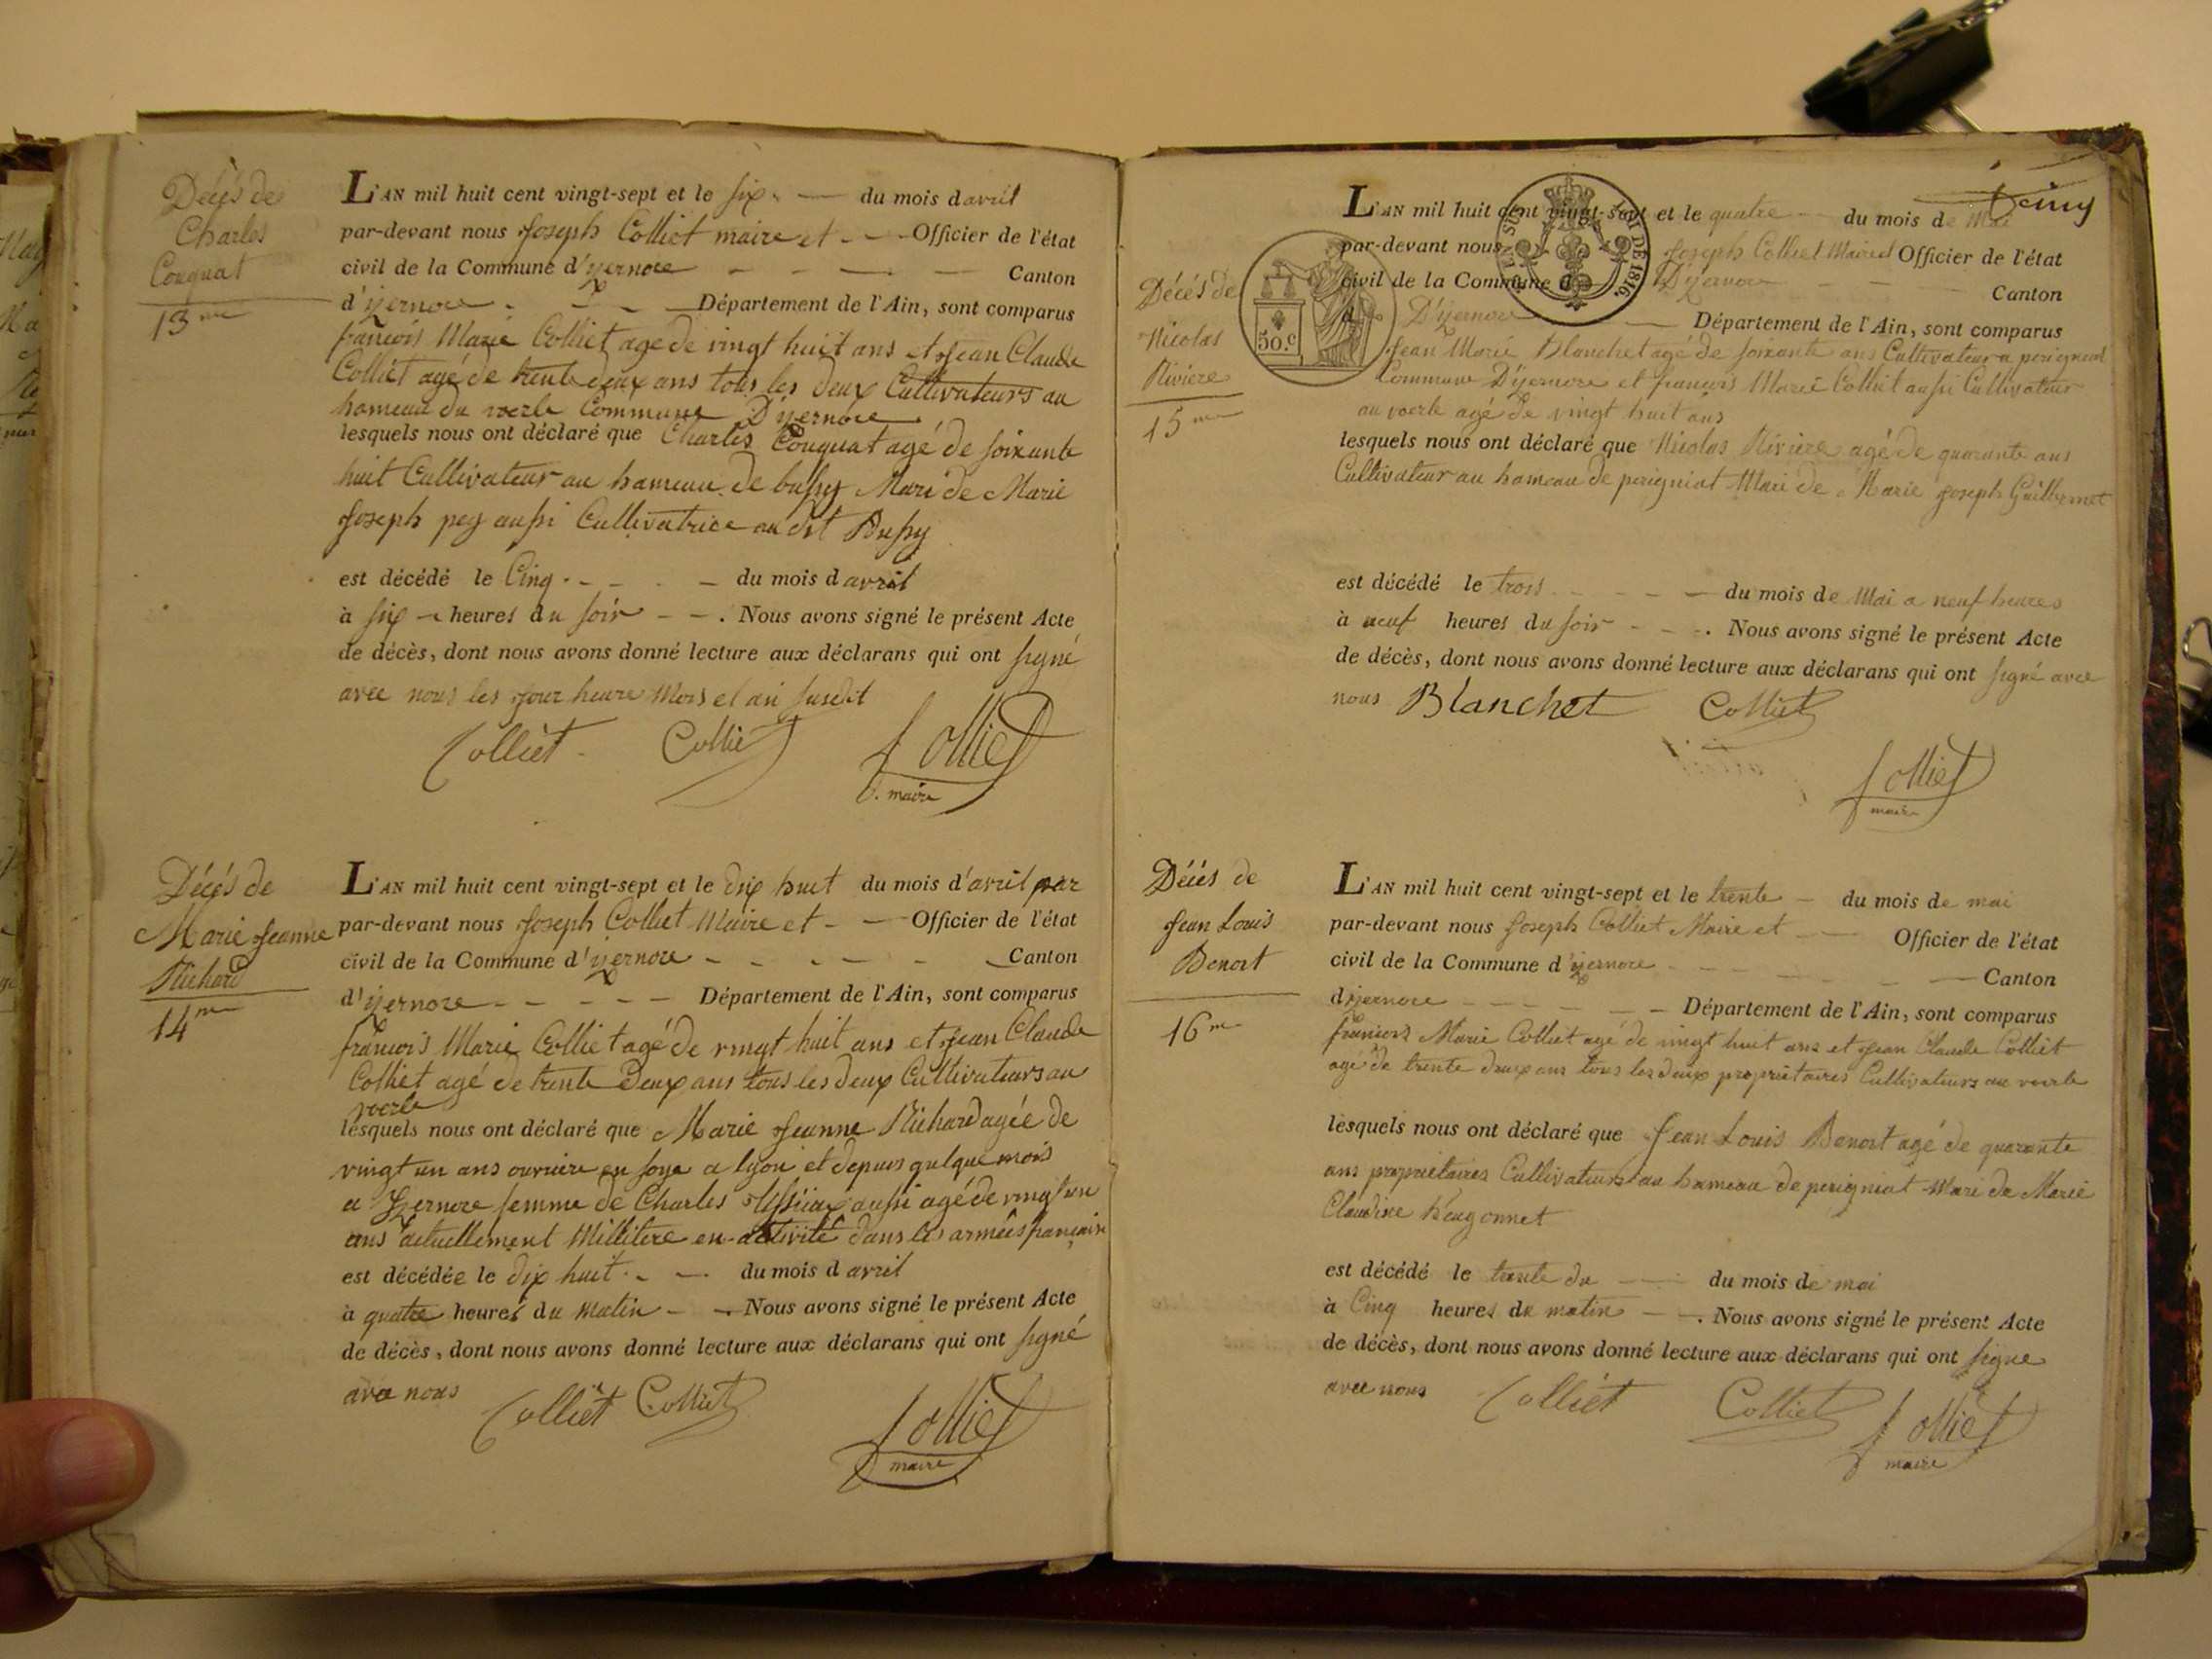 Décés de
Charles
Couquat
13me
L'AN mil huit cent vingt-sept et le six du mois d avril
par-devant nous Joseph Colliet maire et Officier de l'état
civil de la Commune d'yzernore Canton
d'yzernore Département de l'Ain, sont comparus
françois Marie Colliet agé de vingt huit ans et Jean Claude
Colliet agé de trente deux ans tous les deux Cultivateurs au
hameau du voerle Commune D'yzernore
lesquels nous ont déclaré que Charles Couquat agé de soixante
huit Cultivateur au hameau de bussy Mari de Marie
Joseph pey aussi Cultivatrice au dit Bussy
est décédé le Cinq du mois d avril
à six heures du soir . Nous avons signé le présent Acte
de décès, dont nous avons donné lecture aux déclarans qui ont signé
avec nous les jour heure Mois et an susdit
Colliet Colliet Colliet
maire
Décés de
Marie Jeanne
Richard
14me
L'AN mil huit cent vingt-sept et le dix huit du mois d'avril par
par-devant nous Joseph Colliet Maire et Officier de l'état
civil de la Commune d'yzernore Canton
d'yzernore Département de l'Ain, sont comparus
françois Marie Colliet agé de vingt huit ans et Jean Claude
Colliet agé de trente deux ans tous les deux Cultivateurs au
voerle
lesquels nous ont déclaré que Marie Jeanne Richard agée de
vingt un ans ouvriere en soye a lyon et depuis qulque mois
a Yzernore femme de Charles aussi agé de vingt un
ans actuellement Millitere en activité dans les armées français
est décédée le dix huit du mois d avril
à quatre heures du matin . Nous avons signé le présent Acte
de décès, dont nous avons donné lecture aux déclarans qui ont signé
avec nous Colliet Colliet Colliet
maire
Décés de
Nicolas
Riviere
15me
50.c
DE 1816.
L'AN mil huit cent vingt-sept et le quatre du mois de Mai
par-devant nous Joseph Colliet Maire et Officier de l'état
civil de la Commune d D'yzernore Canton
d D'yzernore Département de l'Ain, sont comparus
Jean Marie Blanchet agé de soixante ans Cultivateur a perigniat
Commune D'yzernore et francois Marie Colliet aussi Cultivateur
au voerle agé de vingt huit ans
lesquels nous ont déclaré que Nicolas Riviere agé de quarante ans
Cultivateur au hameau de perigniat Mari de Marie Joseph Guillermet
est décédé le trois du mois de Mai a neuf heures
à neuf heures du soir . Nous avons signé le présent Acte
de décès, dont nous avons donné lecture aux déclarans qui ont signé avec
nous Blanchet Colliet
Colliet
maire
Décés de
Jean Louis
Benoit
16me
L'AN mil huit cent vingt-sept et le trente du mois de mai
par-devant nous Joseph Colliet Maire et Officier de l'état
civil de la Commune d'yzernore Canton
d'yzernore Département de l'Ain, sont comparus
francois Marie Colliet agé de vingt huit ans et Jean Claude Colliet
agé de trente deux ans tous les deux proprietaires Cultivateurs au voerle
lesquels nous ont déclaré que Jean Louis Benoit agé de quarante
ans proprietaires Cultivateurs au hameau de perigniat Mari de Marie
Claudine hugonnet
est décédé le trente du du mois de mai
à Cinq heures du matin . Nous avons signé le présent Acte
de décès, dont nous avons donné lecture aux déclarans qui ont signe
avec nous Colliet Colliet Colliet
maire